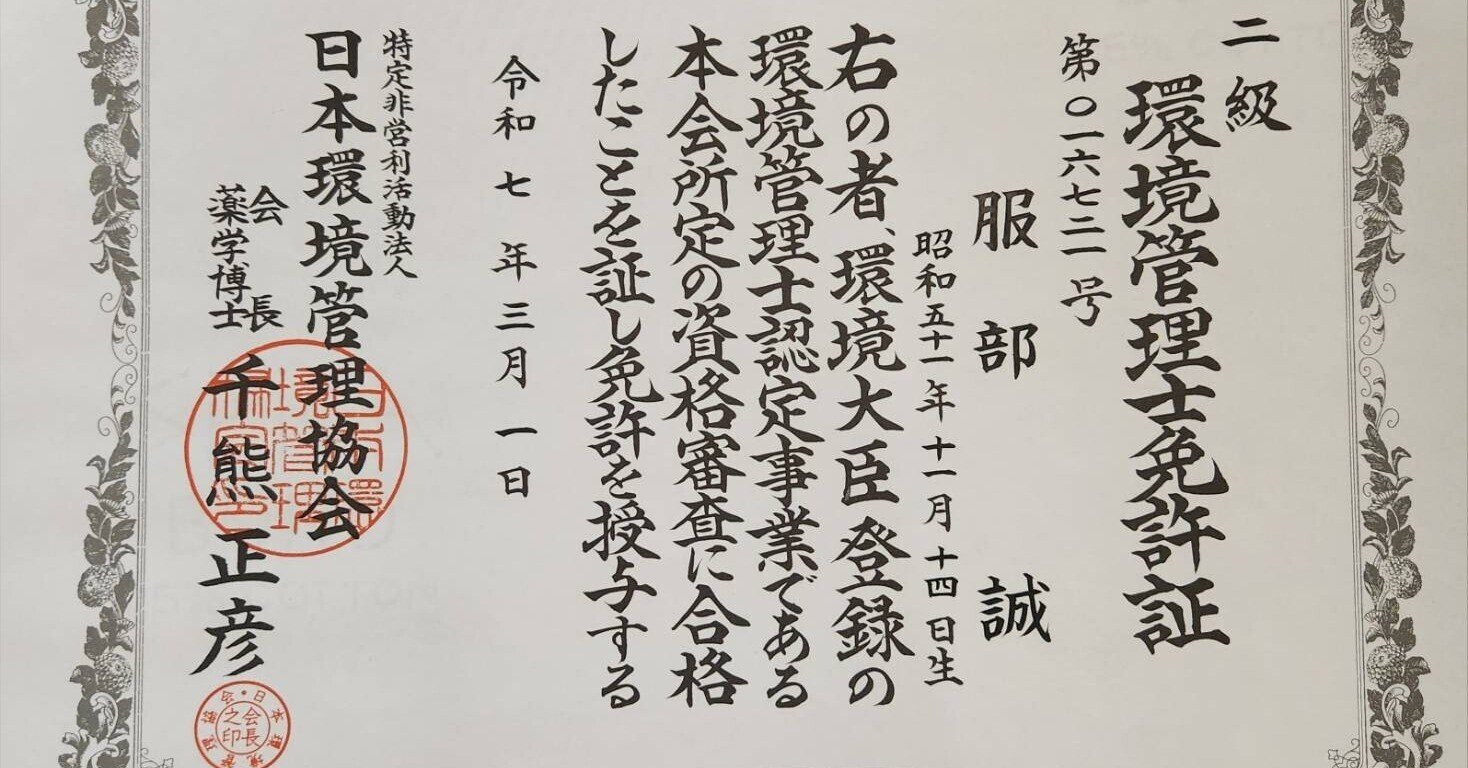 二級
環境管理士免許証
第〇一六七三一号
服部誠
昭和五十一年十一月十四日生
右の者、環境大臣登録の
環境管理士認定事業である
本会所定の資格審査に合格
したことを証し免許を授与する
令和七年三月一日
特定非営利活動法人
日本環境管理協会
会長
薬学博士
千熊正彦
会長之印